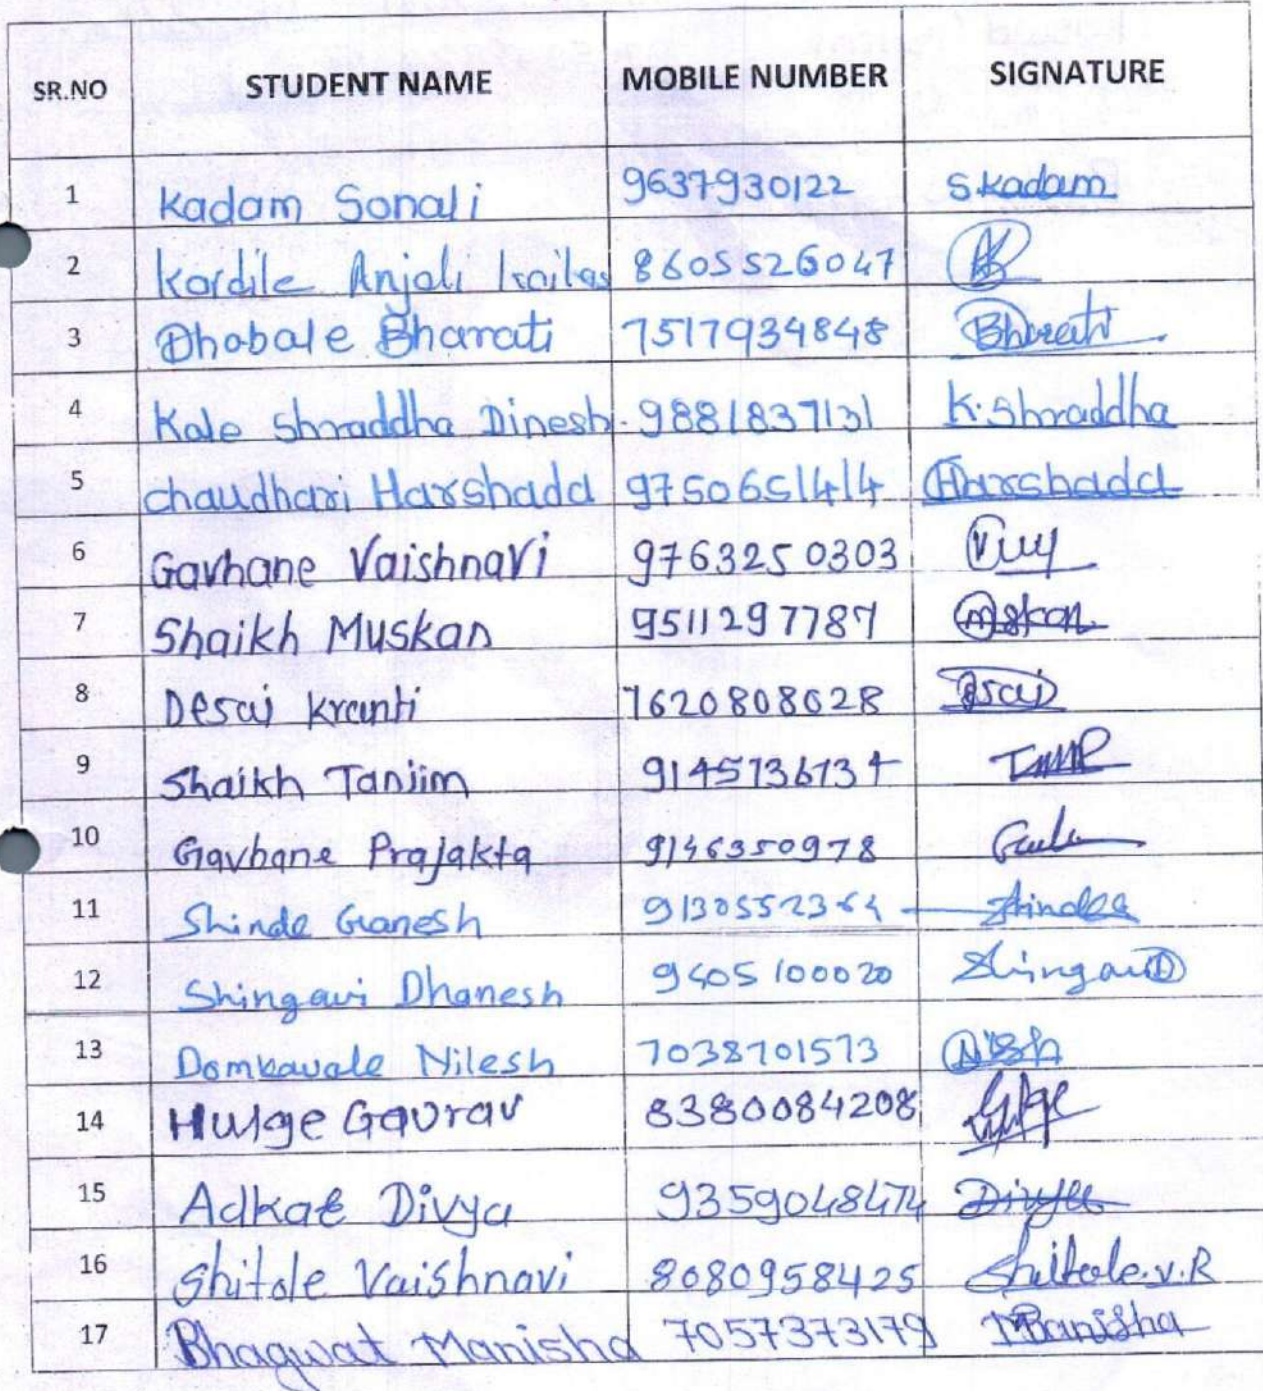 SR.NO STUDENT NAME MOBILE NUMBER SIGNATURE
1 Kadam Sonali 9637930122 S.kadam
2 Kardile Anjali Kailas 8605526047
3 Dhobale Bharati 7517934848 Bharati
4 Kale Shraddha Dinesh. 9881837131 K.Shraddha
5 chaudhari Harshada 9750651414 Harshada
6 Gavhane Vaishnavi 9763250303
7 Shaikh Muskan 9511297787
8 Desai Kranti 7620808628 Desai
9 Shaikh Tanjim
10 Gavhane Prajakta 9146350978
11 Shinde Ganesh 9130552364 Shinde
12 Shingavi Dhanesh 9405100020 Shingavi
13 Domkavale Nilesh 7038701573
14 Hulge Gaurav 8380084208
15 Adkat Divya 9359048474 Divya
16 Shitole Vaishnavi 8080958425 Shitole.V.R
17 Bhagwat Manisha 7057373179 Manisha